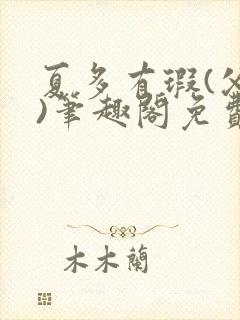 夏多有瑕(父
)筆趣閣免費
木木蘭